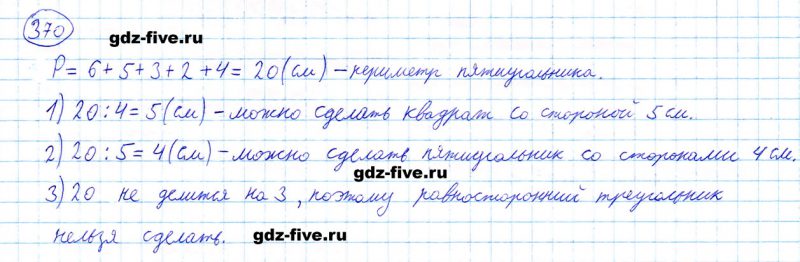 370
gdz-five.ru
P = 6+5+3+2+4 = 20(см) – периметр пятиугольника.
1) 20:4=5(см) – можно сделать квадрат со стороной 5см.
2) 20:5=4(см) – можно сделать пятиугольник со сторонами 4см.
gdz-five.ru
3) 20 не делится на 3, поэтому равносторонний треугольник
нельзя сделать. gdz-five.ru